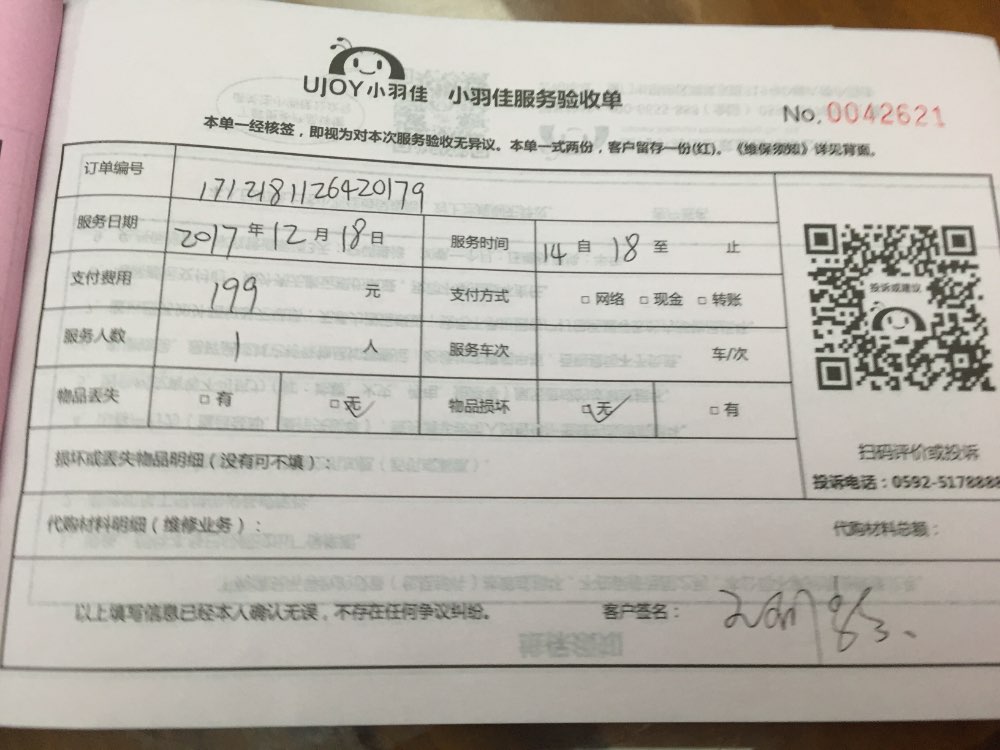 UJOY小羽佳 小羽佳服务验收单
No. 0042621
本单一经核签，即视为对本次服务验收无异议。本单一式两份，客户留存一份(红)。《维保须知》详见背面。
订单编号 1712181126420179
服务日期 2017年12月18日 服务时间 14自18至 止
支付费用 199 元 支付方式 □网络 □现金 □转账
投诉或建议
服务人数 1 人 服务车次 车/次
物品丢失 □有 □无 物品损坏 □无 □有
扫码评价或投诉
损坏或丢失物品明细（没有可不填）：
投诉电话：0592-5178888
代购材料明细（维修业务）： 代购材料总额：
以上填写信息已经本人确认无误，不存在任何争议纠纷。 客户签名：